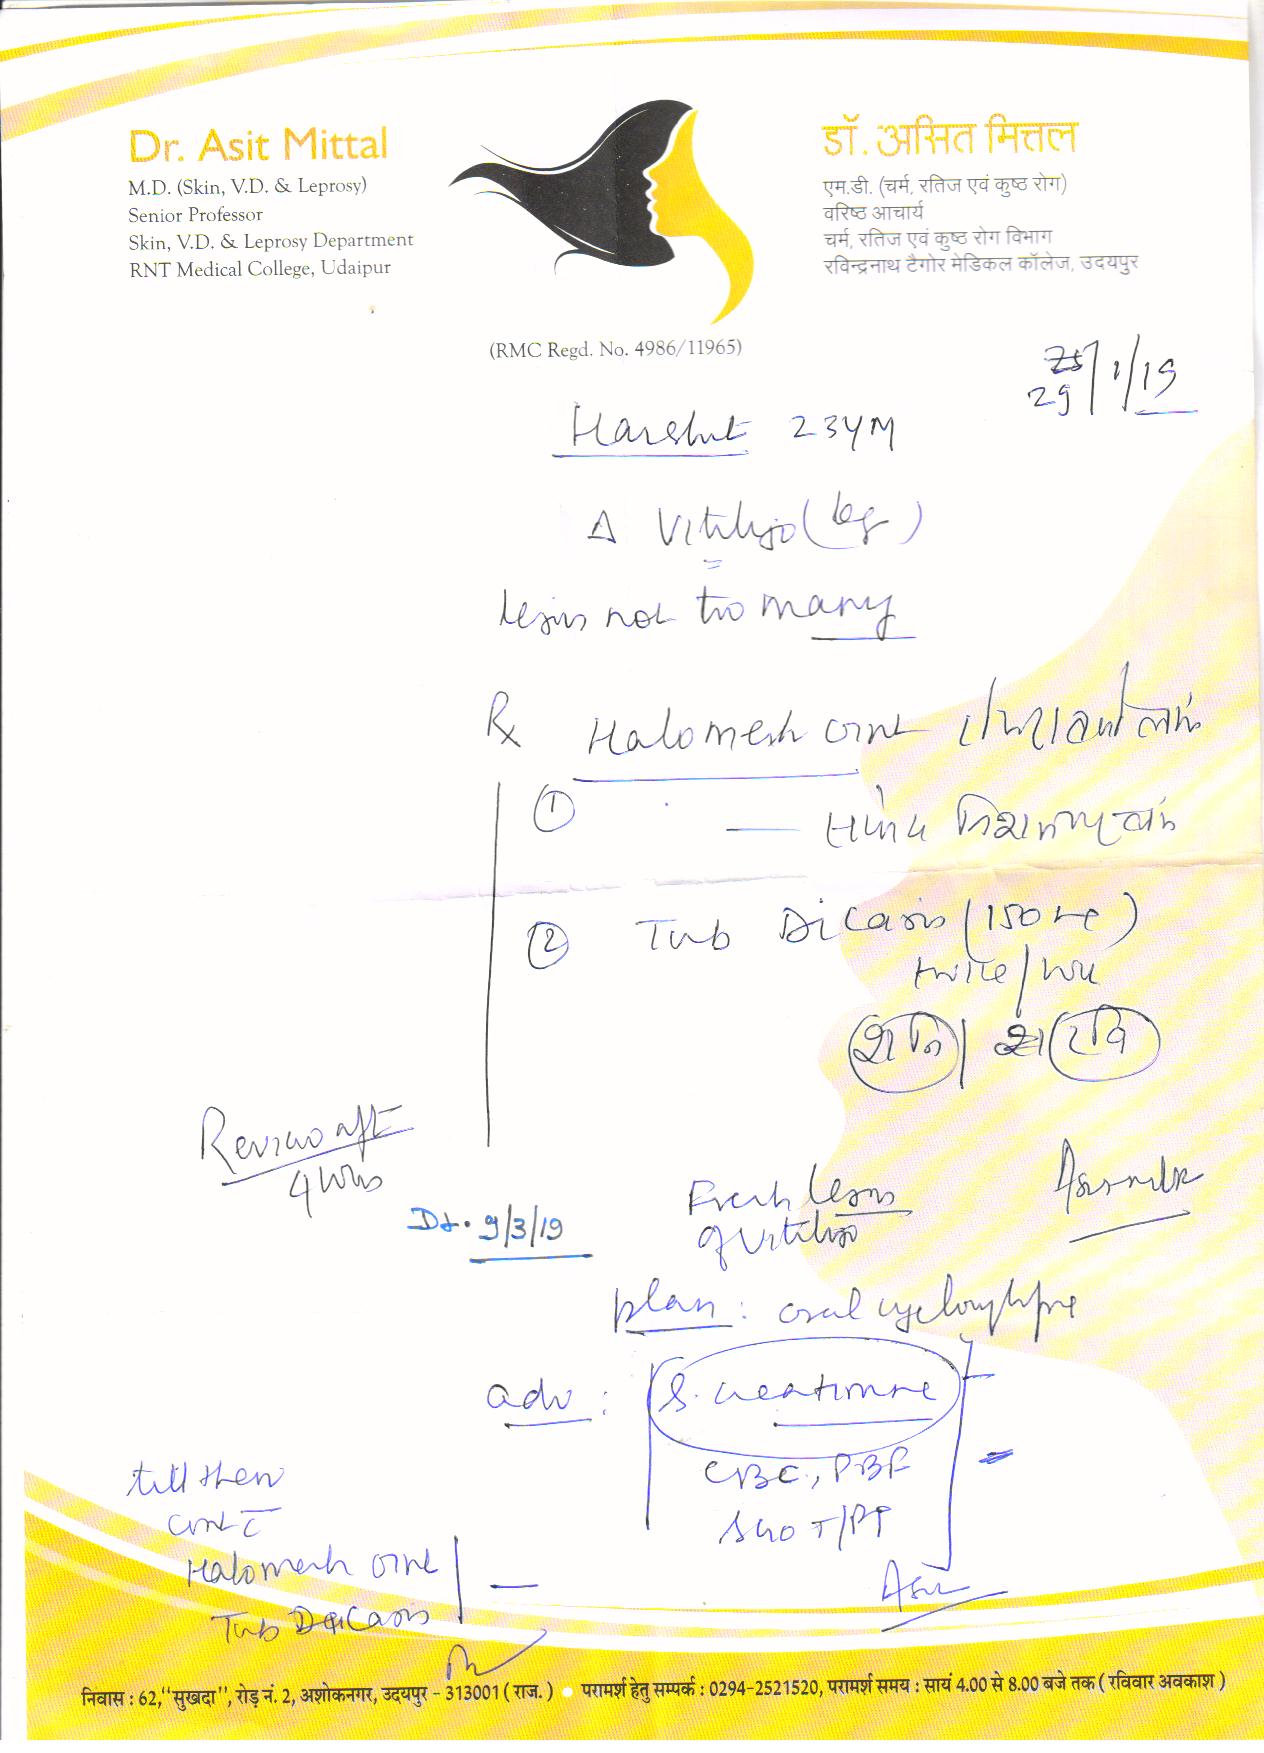 Dr. Asit Mittal
M.D. (Skin, V.D. & Leprosy)
Senior Professor
Skin, V.D. & Leprosy Department
RNT Medical College, Udaipur
डॉ. असित मित्तल
एम.डी. (चर्म, रतिज एवं कुष्ठ रोग)
वरिष्ठ आचार्य
चर्म, रतिज एवं कुष्ठ रोग विभाग
रविन्द्रनाथ टैगोर मेडिकल कॉलेज, उदयपुर
(RMC Regd. No. 4986/11965)
29/1/19
Harshit 23YM
Δ Vitiligo (leg)
lesions not too many
Rx Halomesh oint
①
② Tab Dicaris (150 mg)
twice/wk
शनि / रवि
Review aft
4 wks
Dt. 9/3/19
Fresh lesions
of vitiligo
plan: oral
adv: S. creatinine
CBC, PBF
SGOT/PT
till then
cont c̄
Halomesh oint
Tab Dicaris
निवास : 62,"सुखदा", रोड़ नं. 2, अशोकनगर, उदयपुर - 313001 ( राज. ) • परामर्श हेतु सम्पर्क : 0294-2521520, परामर्श समय : सायं 4.00 से 8.00 बजे तक ( रविवार अवकाश )